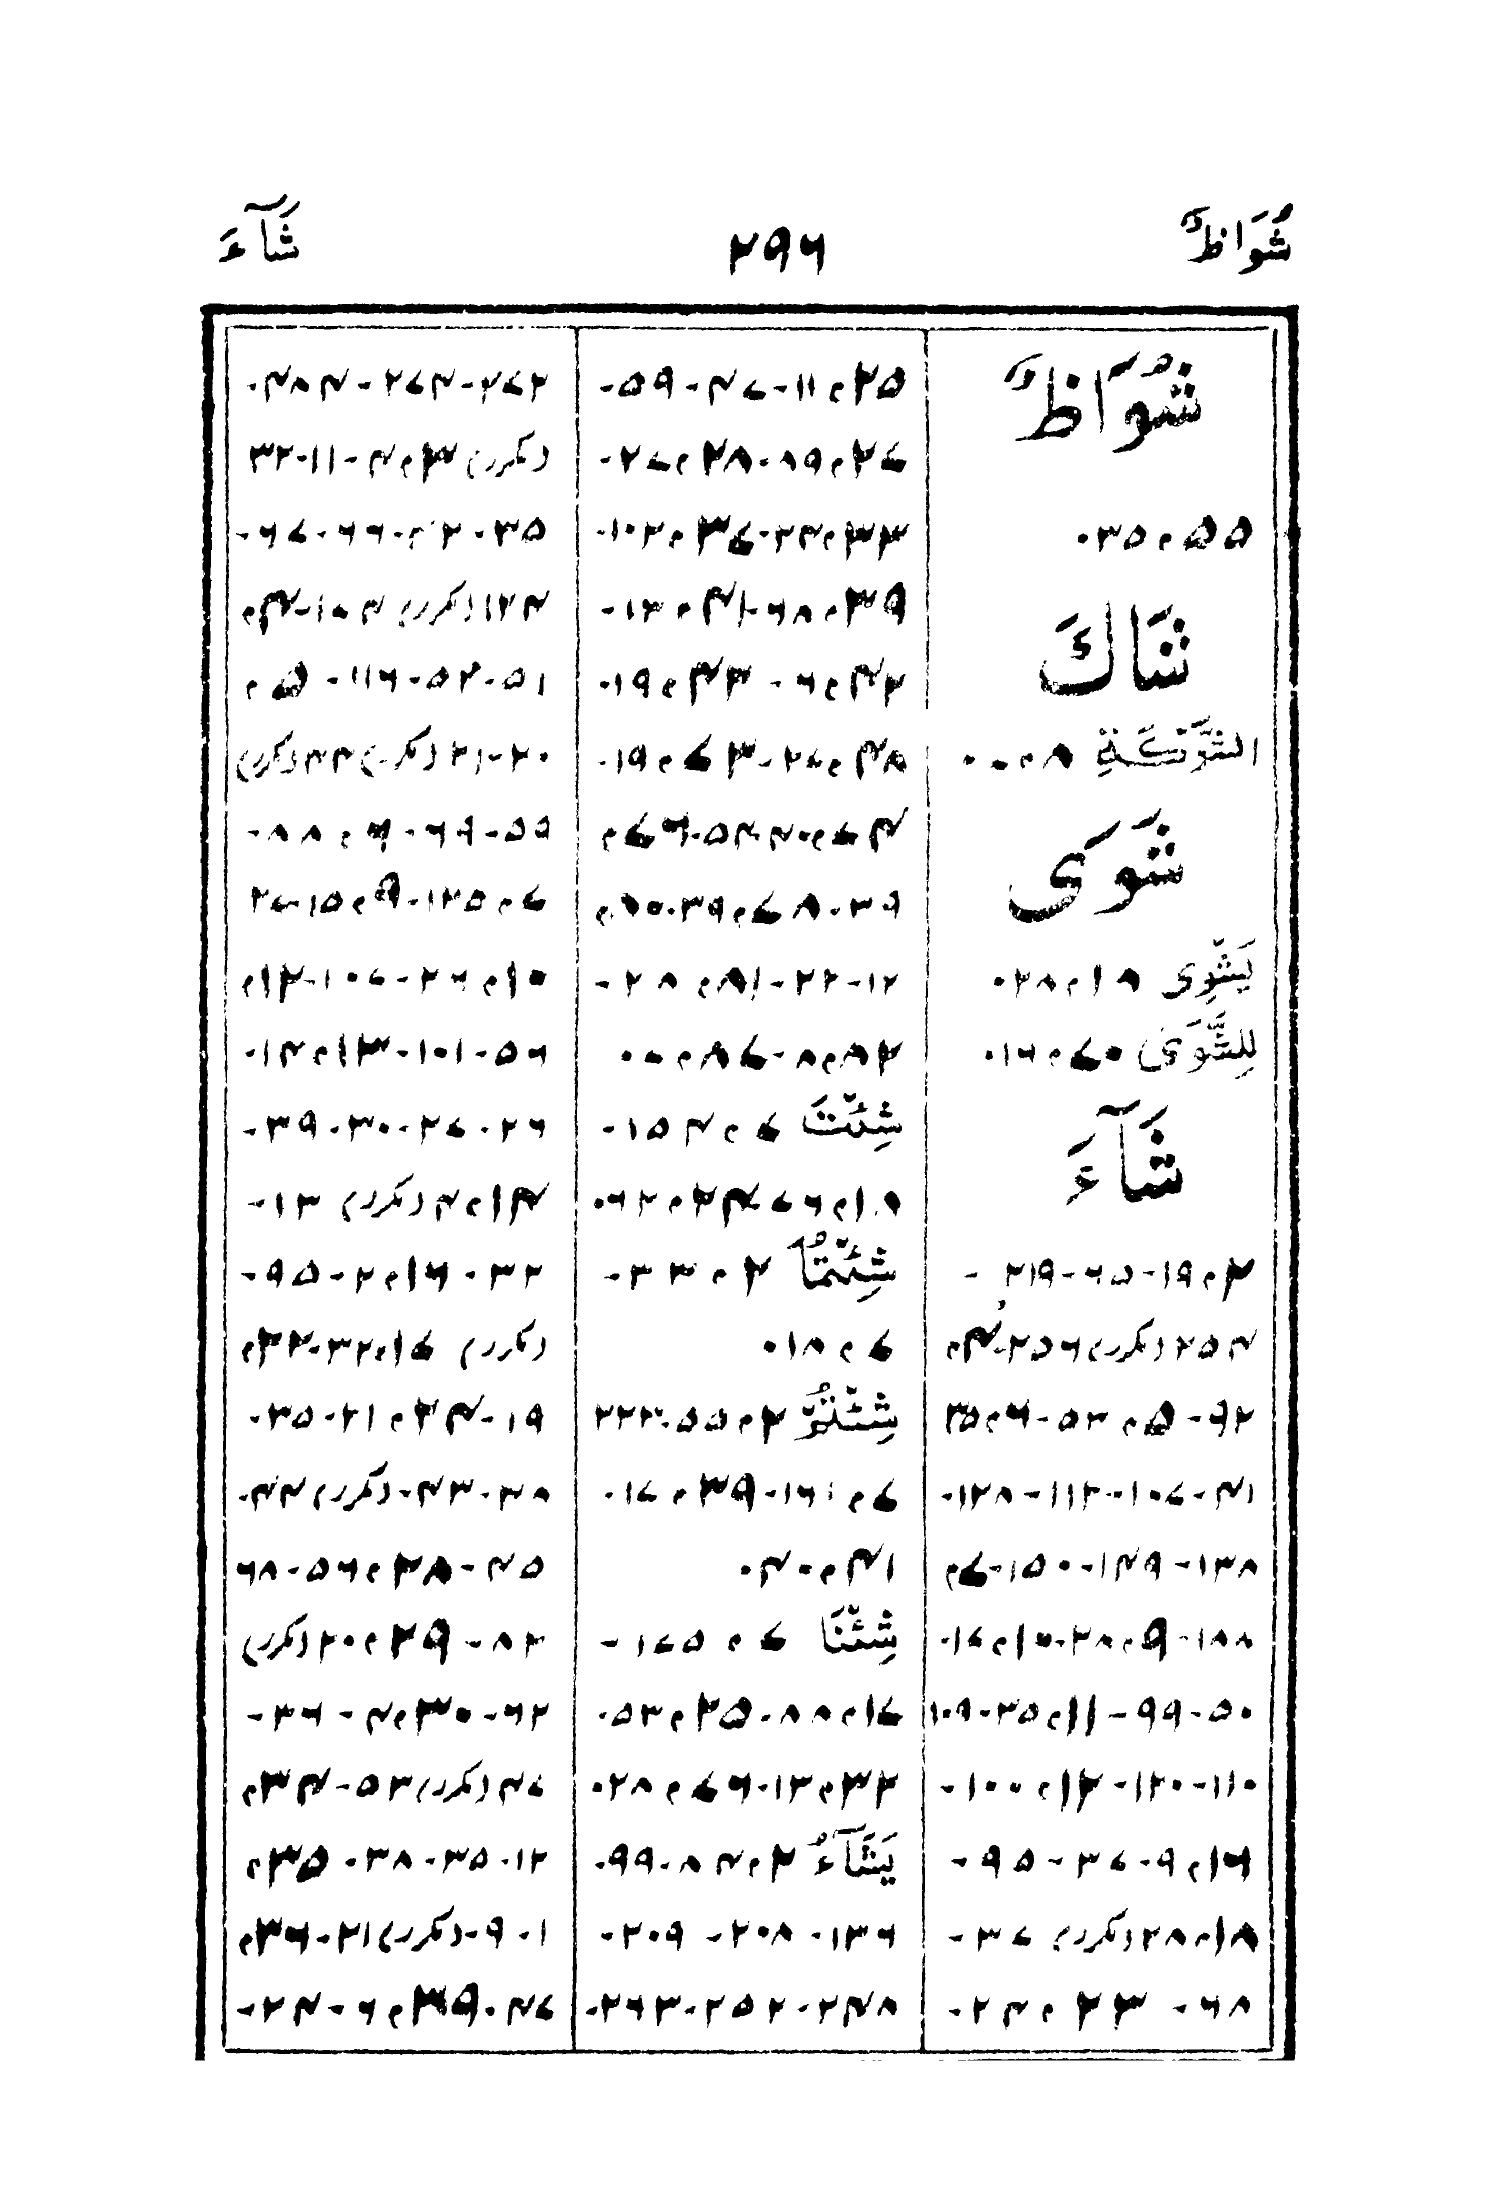 شُوَاظٌ ۲۹۶ شَآءَ
شُوَاظٌ
۵۵م۳۵-
شَاكَ
الشَّوْكَةِ ۸م۷-
شَوَى
يَشْوِى ۱۸م۲۸-
لِلشَّوَى ۷۰م۱۶-
شَآءَ
۲م۱۹-۶۵-۲۱۹-
۲۵۴(مکرر)۲۵۶-۴م
۹۲-۵م۵۳-۶م۳۵
۴۱-۱۰۷-۱۱۲-۱۲۸-
۱۳۸-۱۴۹-۱۵۰-۷م
۱۸۸-۹م۲۸-۱۰م۱۷-
۵۰-۹۹-۱۱م۳۵-۱۰۹
۱۱۰-۱۲۰-۱۲م۱۰۰-
۱۶م۹-۳۷-۹۵-
۱۸م۲۸(مکرر)۳۷-
۶۸-۲۳م۲۴-
۲۵م۱۱-۴۷-۵۹-
۲۷م۸۹-۲۸م۲۷-
۳۳م۲۴-۳۷م۱۰۲-
۳۹م۶۸-۴۱م۱۳-
۴۲م۶-۴۳م۱۹-
۴۸م۲۷-۷۳م۱۹-
۷۴م۴۰-۵۴-۷۶م
۲۹-۷۸م۳۹-۸۰م
۱۲-۲۲-۸۱م۲۸-
۸۲م۸-۸۷م۷-
شِئْتَ ۷م۱۵۴-
۱۸م۷۶-۲۴م۶۲-
شِئْتُمَا ۲م۳۳-
۷م۱۸-
شِئْتُمْ ۲م۵۵-۲۲۳
۷م۱۶۱-۳۹م۱۷-
۴۱م۴۰-
شِئْنَا ۷م۱۷۵-
۱۷م۸۸-۲۵م۵۳-
۳۲م۱۳-۷۶م۲۸-
يَشَآءُ ۲م۸۴-۹۹-
۱۳۶-۲۰۸-۲۰۹-
۲۴۸-۲۵۲-۲۶۳-
۲۷۲-۲۷۴-۲۸۴-
(مکرر)۳م۴-۱۱-۳۲
۳۵-۴۲-۶۶-۶۷-
۱۲۴(مکرر)۱۵۴-۴م
۵۱-۵۲-۱۱۶-۵م
۲۰-۲۱(مکرر)۴۴(مکرر)
۵۹-۶۹-۶م۸۸-
۷م۱۲۵-۹م۱۵-۲۷
۱۰م۲۶-۱۰۷-۱۲م
۵۶-۱۰۱-۱۳م۱۴-
۲۶-۲۷-۳۰-۳۹-
۱۴م۴(مکرر)۱۳-
۳۲-۱۶م۲-۹۵-
(مکرر)۱۷م۳۲-۲۲م
۱۹-۲۴م۲۱-۳۵-
۳۸-۴۳-(مکرر)۴۴-
۴۵-۲۸م۵۶-۶۸
۸۲-۲۹م۲۰(مکرر)
۶۲-۳۰م۴-۳۶-
۴۷(مکرر)۵۳-۳۴م
۱۲-۳۵-۳۸-۳۵م
۱-۹-(مکرر)۲۱-۳۶م
۴۷-۳۹م۶-۲۴-